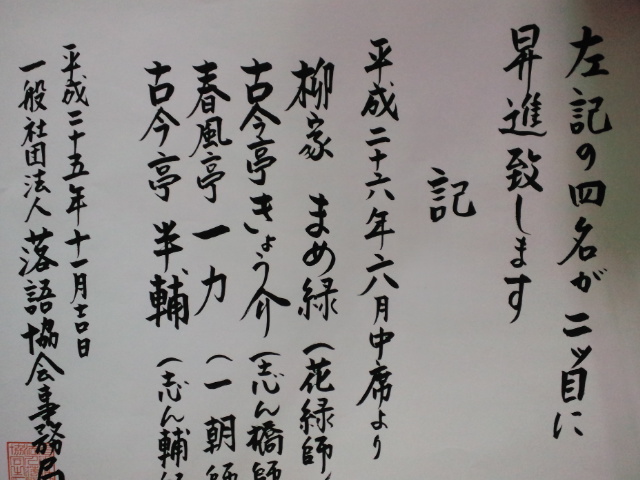 左記の四名が二ッ目に
昇進致します
記
平成二十六年六月中席より
柳家 まめ緑 (花緑師)
古今亭 きょう介 (志ん橋師
春風亭 一力 (一朝師
古今亭 半輔 (志ん輔師
平成二十五年十一月吉日
一般社団法人 落語協会事務局